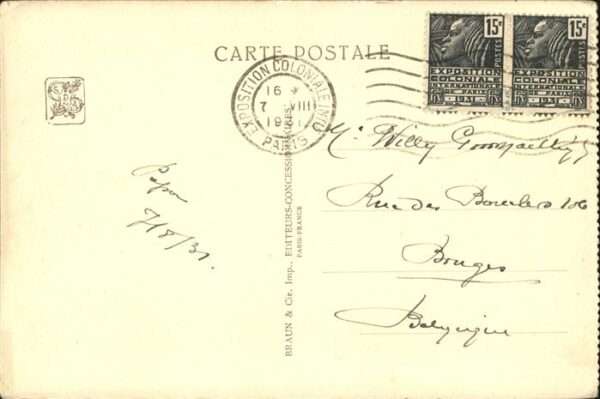 CARTE POSTALE
EXPOSITION COLONIALE INT.
16
7 VIII
1931
PARIS
15c
POSTES
EXPOSITION
COLONIALE
INTERNATIONALE
PARIS
1931
15c
POSTES
EXPOSITION
COLONIALE
INTERNATIONALE
PARIS
1931
Mr Willy
Rue des 106
Bruges
Belgique
Papa
7/8/31.
BRAUN & Cie, Imp., EDITEURS-CONCESSIONNAIRES
PARIS-FRANCE